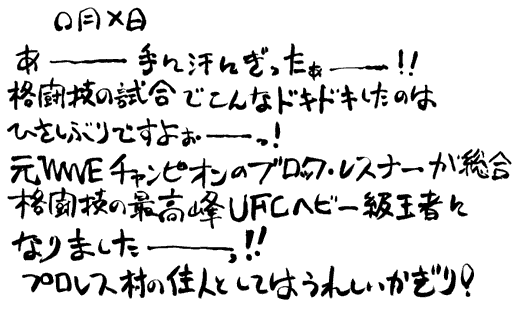 〇月×日
あ――― 手に汗にぎったぁ―――!!
格闘技の試合でこんなドキドキしたのは
ひさしぶりですよぉ―――っ!
元WWEチャンピオンのブロック・レスナーが総合
格闘技の最高峰UFCヘビー級王者に
なりました―――っ!!
プロレス村の住人としてはうれしいかぎり!